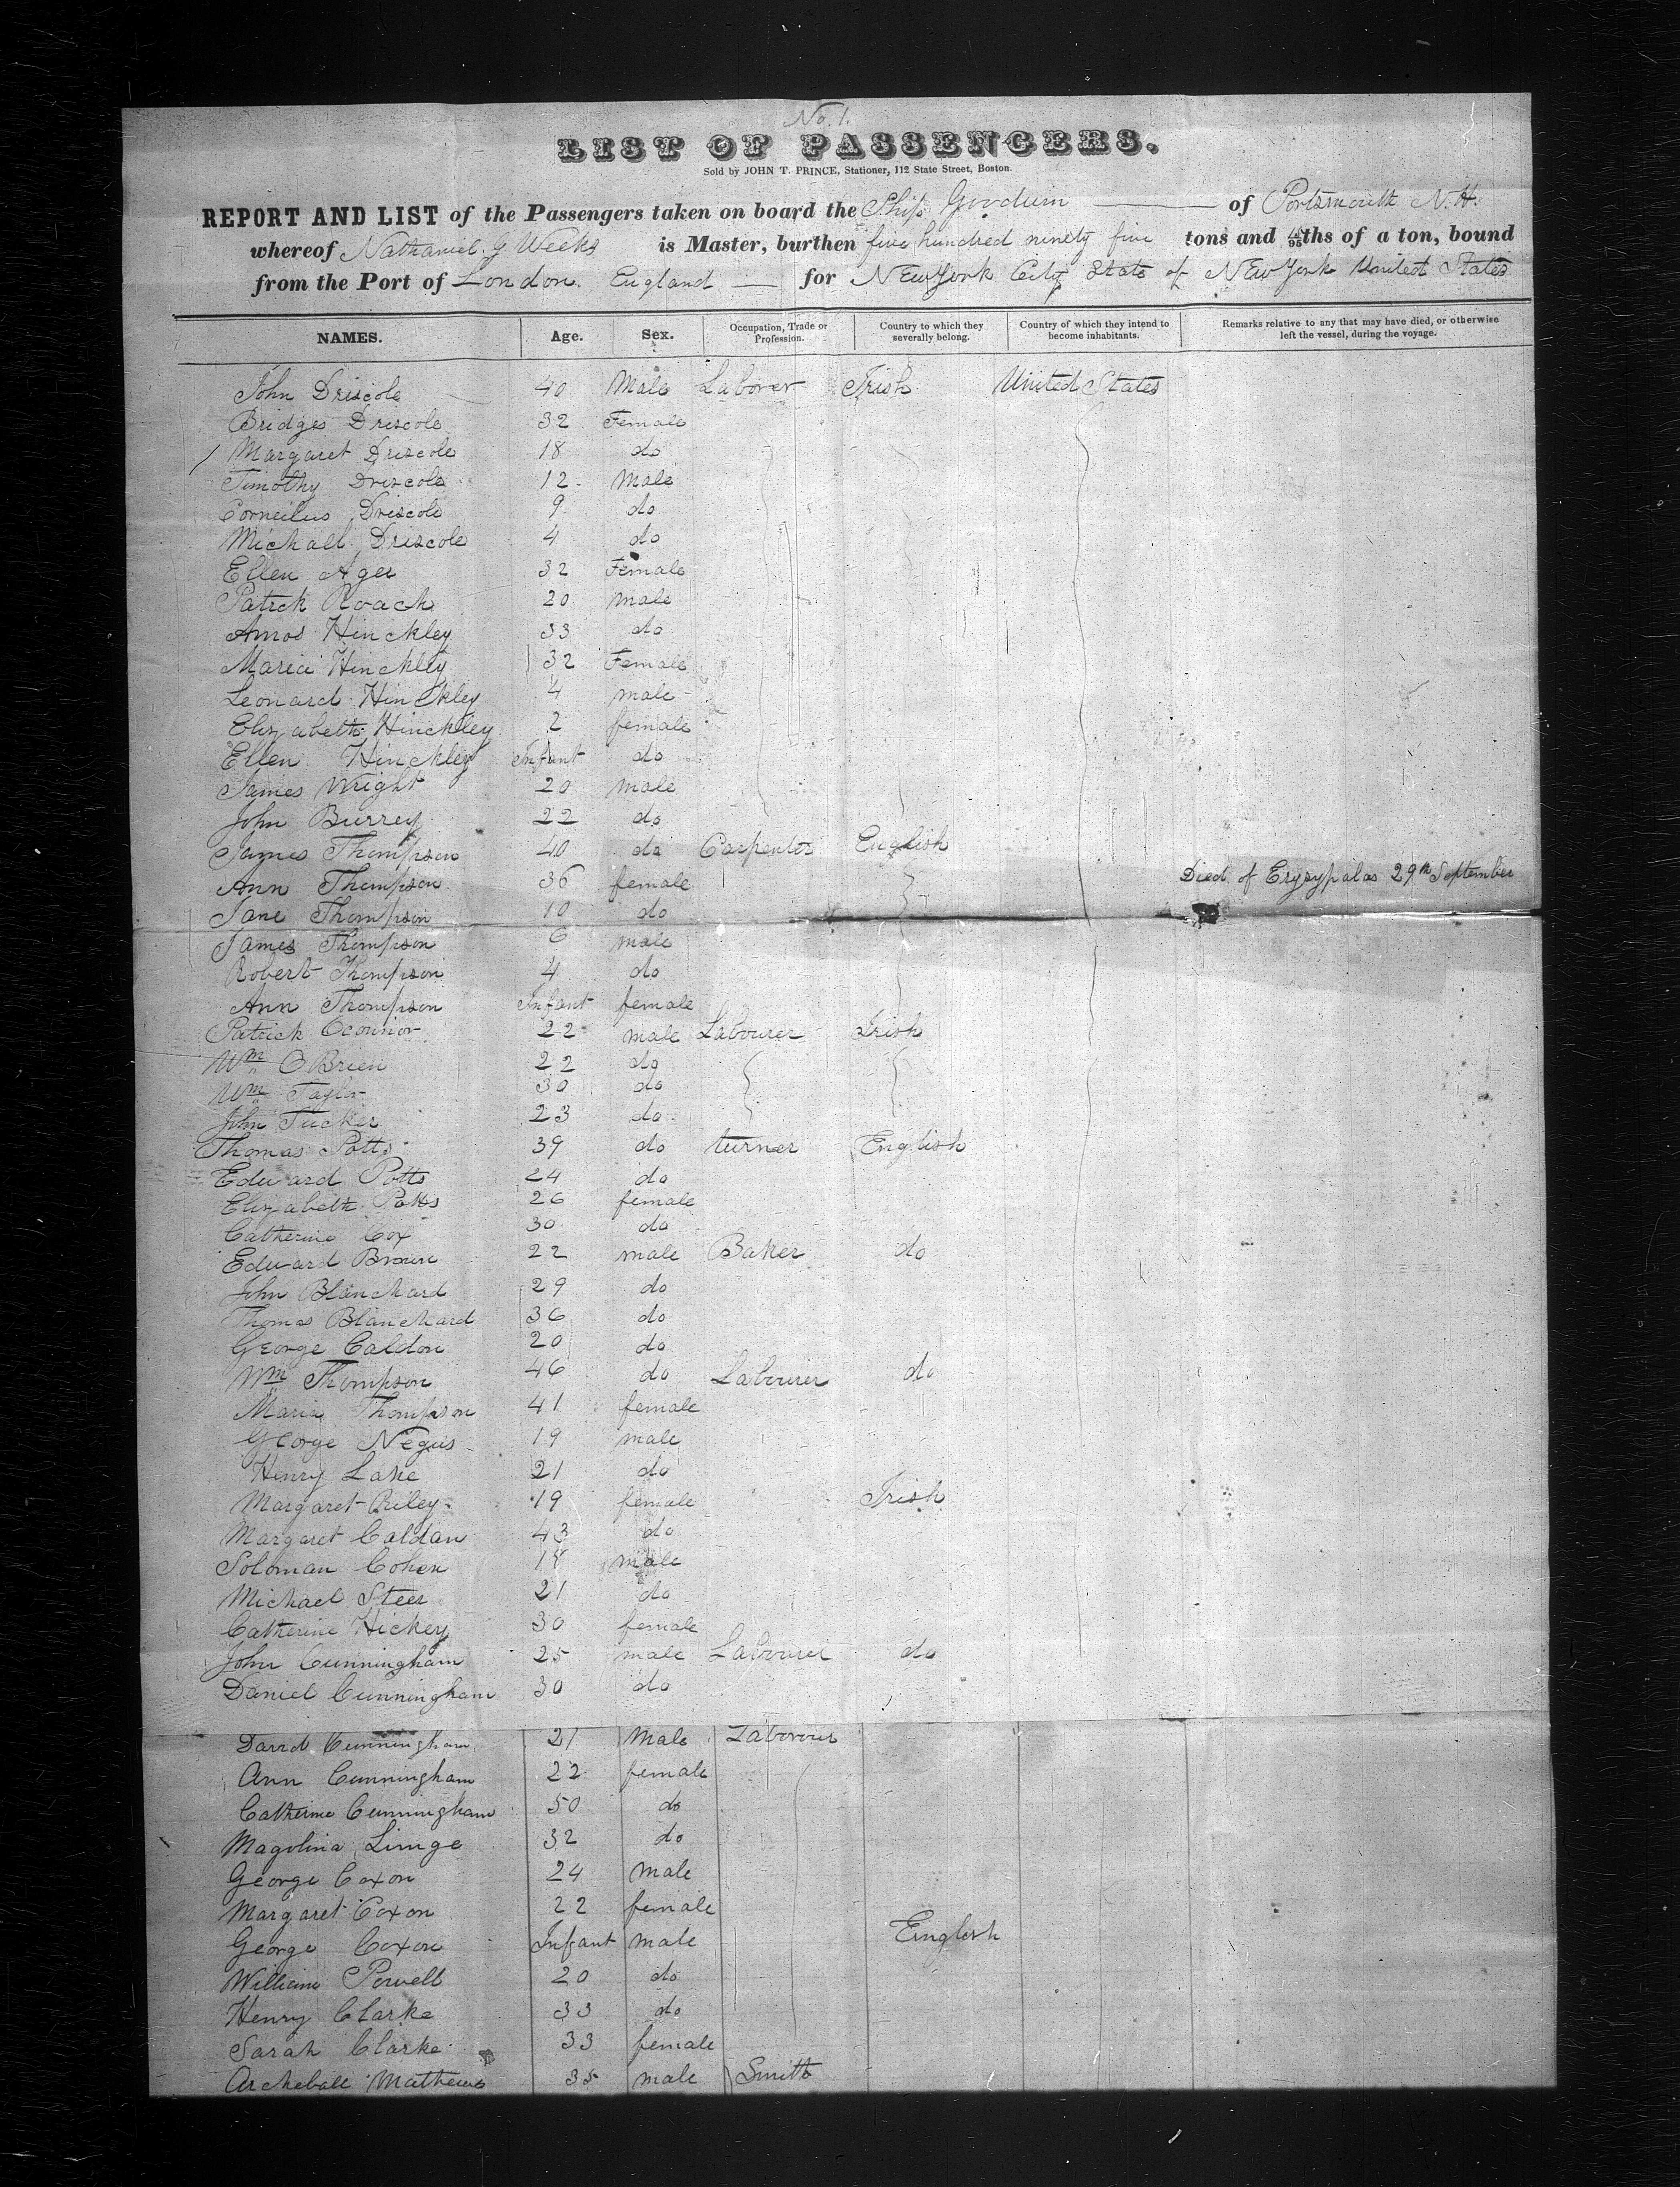 No. 1.
LIST OF PASSENGERS.
Sold by JOHN T. PRINCE, Stationer, 112 State Street, Boston.
REPORT AND LIST of the Passengers taken on board the Ship Goodwin of Portsmouth N.H.
whereof Nathaniel G Weeks is Master, burthen five hundred ninety five tons and /95ths of a ton, bound
from the Port of London. England for New York City State of New York United States
NAMES. Age. Sex. Occupation, Trade or Profession. Country to which they severally belong. Country of which they intend to become inhabitants. Remarks relative to any that may have died, or otherwise left the vessel, during the voyage.
John Driscole 40 Male Laborer Irish United States
Bridges Driscole 32 Female
Margaret Driscole 18 do
Timothy Driscole 12 Male
Corneilus Driscole 9 do
Michall Driscole 4 do
Ellen Ager 32 Female
Patrck Roach 20 male
Amos Hinckley 33 do
Maria Hinckley 32 Female
Leonard Hinckley 4 male
Elizabeth Hinckley 2 female
Ellen Hinckley Infant do
James Wright 20 male
John Burrey 22 do
James Thompson 40 do Carpenter English
Ann Thompson 36 female Died of Erysypalas 29th September
Jane Thompson 10 do
James Thompson 6 male
Robert Thompson 4 do
Ann Thompson Infant female
Patrick Oconnor 22 male Labourer Irish
Wm OBrien 22 do
Wm Taylor 30 do
John Tucker 23 do
Thomas Potts 39 do turner English
Edward Potts 24 do
Elizabeth Potts 26 female
Catherine Cox 30 do
Edward Brown 22 male Baker do
John Blanchard 29 do
Thomas Blanchard 36 do
George Caldon 20 do
Wm Thompson 46 do Labourer do
Maria Thompson 41 female
George Negus 19 male
Henry Lake 21 do
Margaret Riley 19 female Irish
Margaret Caldan 43 do
Soloman Cohen 18 male
Michael Steer 21 do
Catherine Hickey 30 female
John Cunningham 25 male Labourer do
Daniel Cunningham 30 do
David Cunningham 21 Male Laborour
Ann Cunningham 22 female
Catherine Cunningham 50 do
Magolina Limge 32 do
George Coxon 24 Male
Margaret Coxon 22 female
George Coxon Infant male English
William Powell 20 do
Henry Clarke 33 do
Sarah Clarke 33 female
Archeball Mathews 35 male Smith